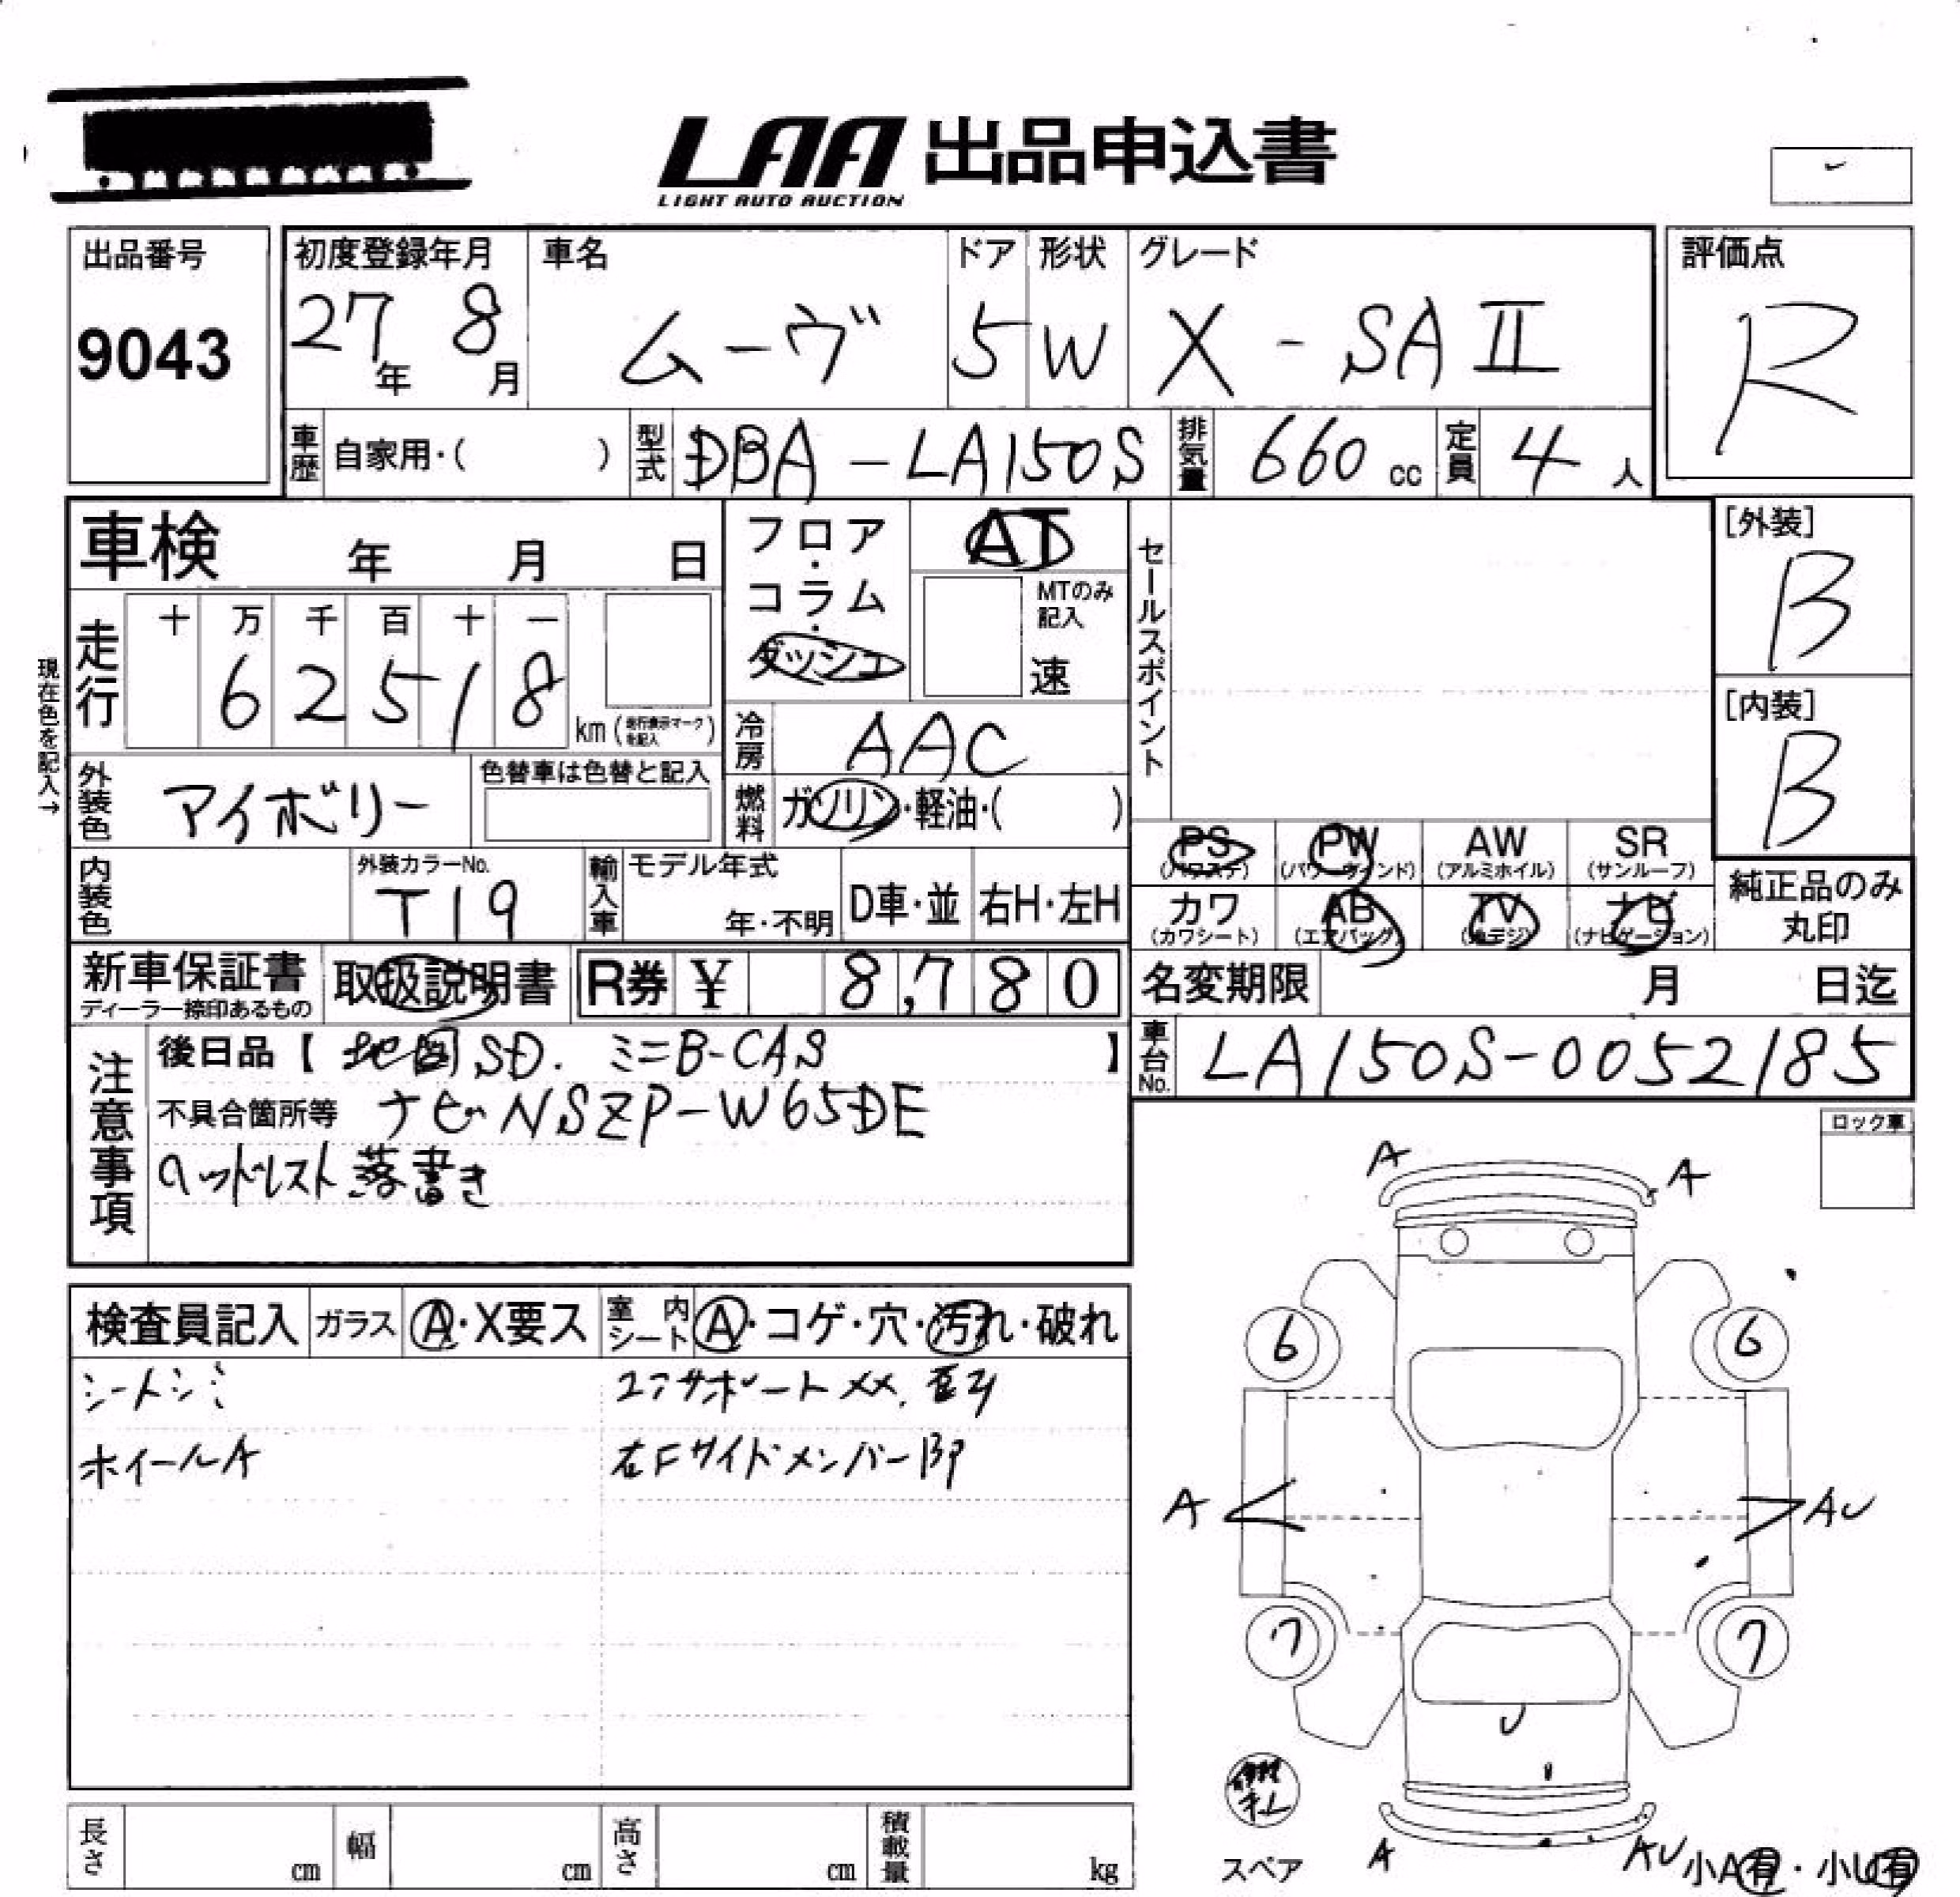 LAA 出品申込書
LIGHT AUTO AUCTION
出品番号
9043
初度登録年月
27年 8月
車名
ムーヴ
ドア
5
形状
W
グレード
X - SA II
評価点
R
車歴 自家用・( )
型式 DBA-LA150S
排気量 660 cc
定員 4 人
車検 年 月 日
フロア・コラム・ダッシュ
AT
MTのみ記入
速
セールスポイント
[外装]
B
[内装]
B
現在色を記入→
走行
十 万 千 百 十 一
6 2 5 1 8
km (走行表示マークを記入)
冷房 AAC
外装色 アイボリー
色替車は色替と記入
燃料 ガソリン・軽油・( )
PS (パワステ)
PW (パワーウィンド)
AW (アルミホイル)
SR (サンルーフ)
カワ (カワシート)
AB (エアバック)
TV (地デジ)
ナビ (ナビゲーション)
純正品のみ丸印
内装色
外装カラーNo.
T19
輸入車
モデル年式
年・不明
D車・並
右H・左H
新車保証書
ディーラー捺印あるもの
取扱説明書
R券 ¥ 8,780
名変期限 月 日迄
車台No. LA150S-0052185
注意事項
後日品【 地図SD. ミニB-CAS 】
不具合箇所等 ナビ NSZP-W65DE
ヘッドレスト落書き
ロック車
検査員記入
ガラス A・X要ス
室内シート A・コゲ・穴・汚れ・破れ
シートシミ
コアサポートXX.
ホイールA
右Fサイドメンバー
A
A
6
6
A
AU
7
7
U
スペア
A
AU
小A有・小U有
長さ cm
幅 cm
高さ cm
積載量 kg